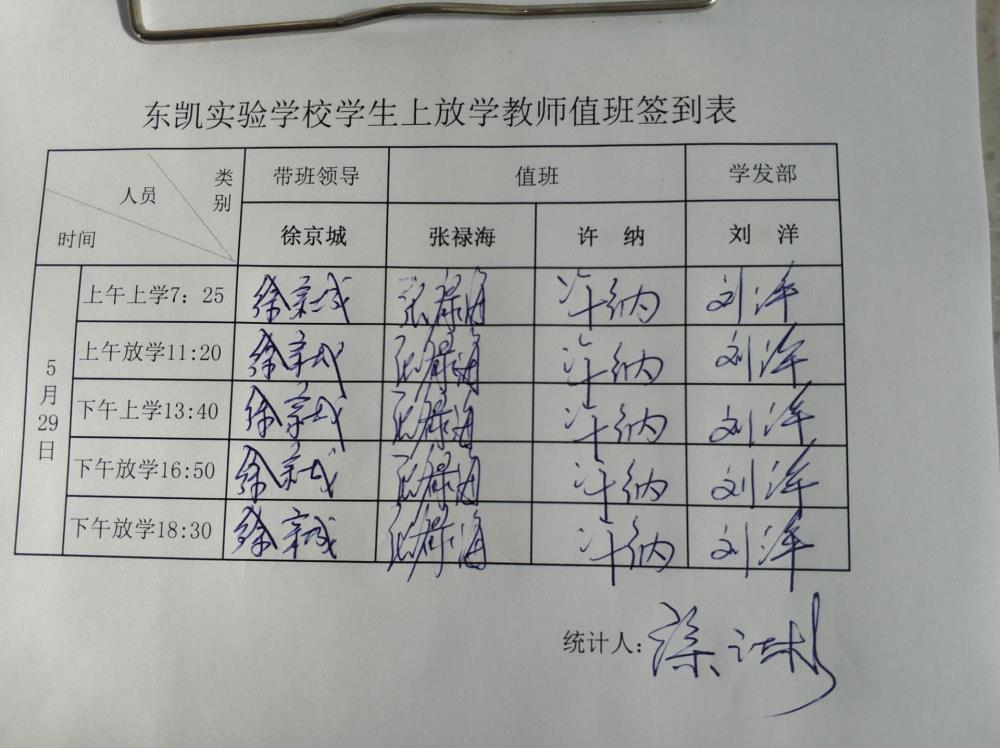 东凯实验学校学生上放学教师值班签到表
类别 人员 时间 带班领导 值班 学发部
徐京城 张禄海 许 纳 刘 洋
5月29日
上午上学7：25 徐京城 张禄海 许纳 刘洋
上午放学11:20 徐京城 张禄海 许纳 刘洋
下午上学13:40 徐京城 张禄海 许纳 刘洋
下午放学16:50 徐京城 张禄海 许纳 刘洋
下午放学18:30 徐京城 张禄海 许纳 刘洋
统计人：